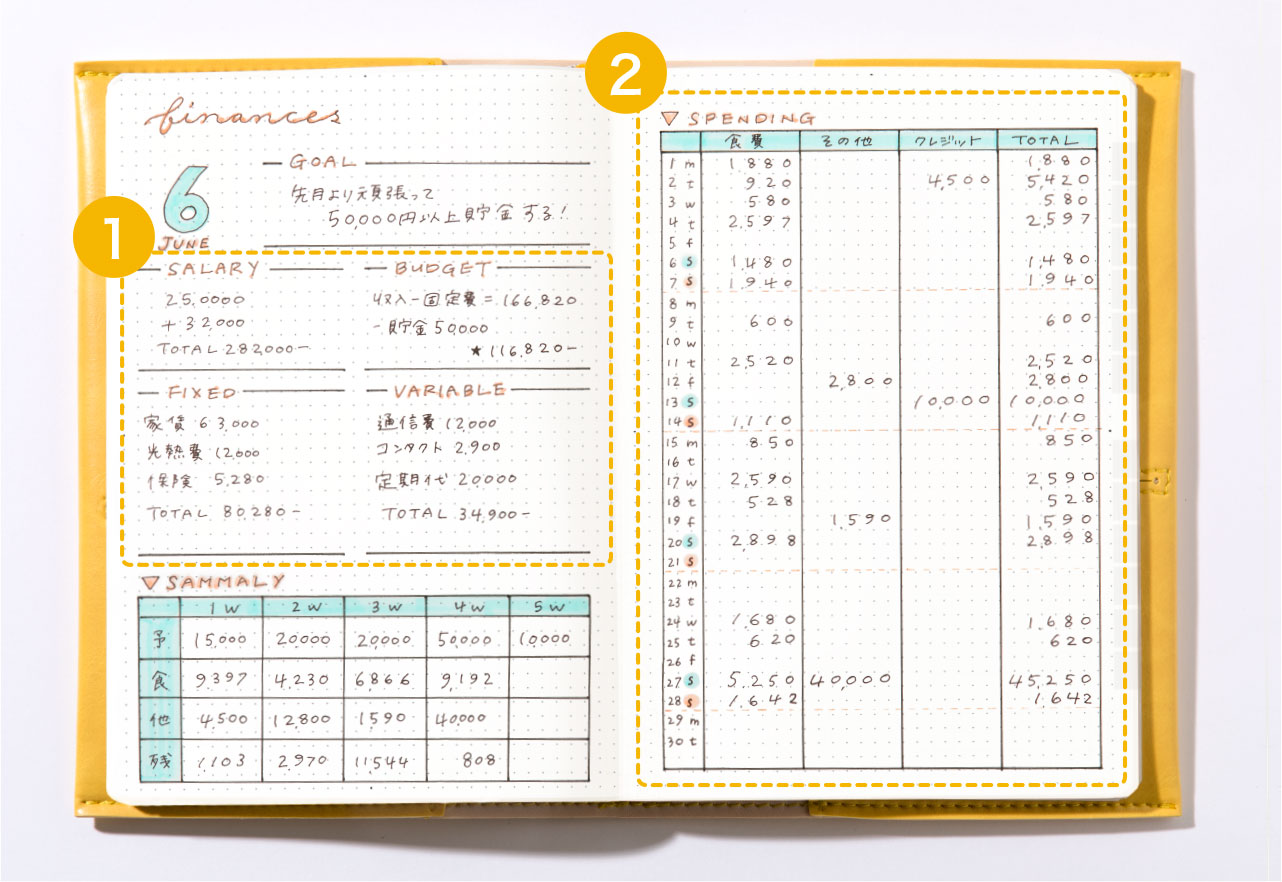 finances
6
JUNE
GOAL
先月より頑張って
50,000円以上貯金する!
1
SALARY
25,0000
+32,000
TOTAL 282,000-
BUDGET
収入-固定費=166,820
-貯金50,000
★116,820-
FIXED
家賃 63,000
光熱費 12,000
保険 5,280
TOTAL 80,280-
VARIABLE
通信費 12,000
コンタクト 2,900
定期代 20,000
TOTAL 34,900-
SAMMALY
1w 2w 3w 4w 5w
予 15,000 20,000 20,000 50,000 10,000
食 9,397 4,230 6,866 9,192
他 4,500 12,800 1,590 40,000
残 1,103 2,970 11,544 808
2
SPENDING
食費 その他 クレジット TOTAL
1 m 1,880 1,880
2 t 920 4,500 5,420
3 w 580 580
4 t 2,597 2,597
5 f
6 s 1,480 1,480
7 s 1,940 1,940
8 m
9 t 600 600
10 w
11 t 2,520 2,520
12 f 2,800 2,800
13 s 10,000 10,000
14 s 1,110 1,110
15 m 850 850
16 t
17 w 2,590 2,590
18 t 528 528
19 f 1,590 1,590
20 s 2,898 2,898
21 s
22 m
23 t
24 w 1,680 1,680
25 t 620 620
26 f
27 s 5,250 40,000 45,250
28 s 1,642 1,642
29 m
30 t